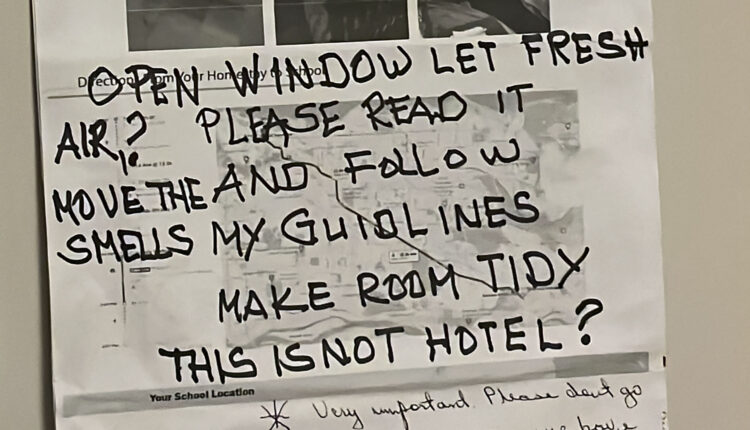 Directions from Your Homestay to School
OPEN WINDOW LET FRESH
AIR? PLEASE READ IT
MOVE THE AND FOLLOW
SMELLS MY GUIDLINES
MAKE ROOM TIDY
THIS IS NOT HOTEL?
Your School Location
Very important. Please don't go
have